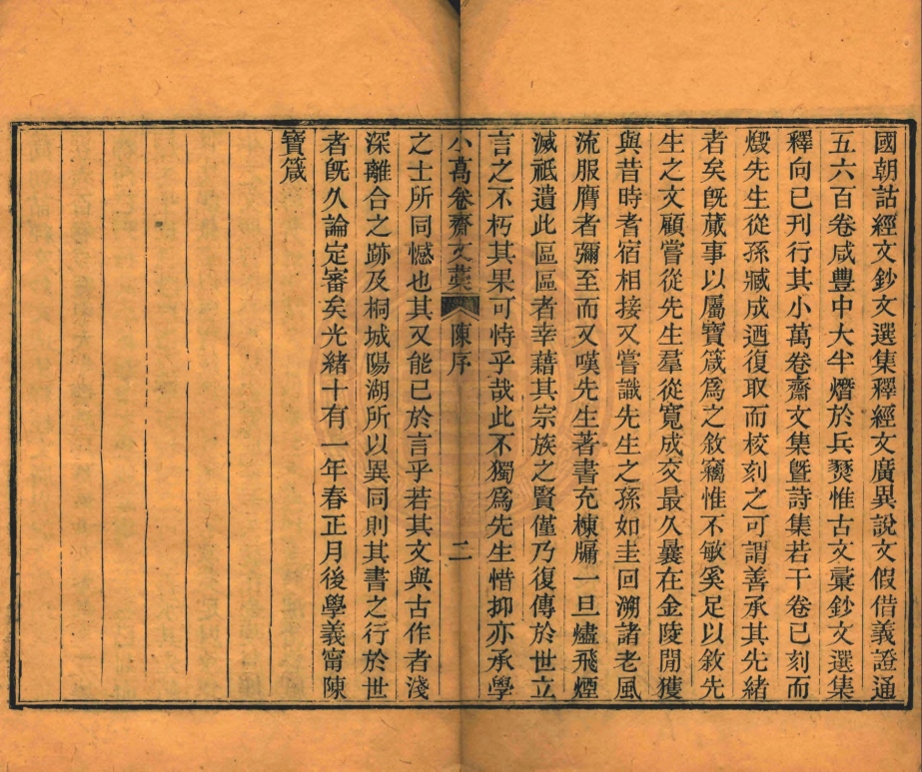 國朝詁經文鈔文選集釋經文廣異說文假借義證通
五六百卷咸豐中大半燬於兵燹惟古文彙鈔文選集
釋向已刊行其小萬卷齋文集曁詩集若干卷已刻而
燬先生從孫臧成迺復取而校刻之可謂善承其先緒
者矣旣蕆事以屬寶箴爲之敘竊惟不敏奚足以敘先
生之文顧嘗從先生羣從寬成交最久曩在金陵閒獲
與昔時耆宿相接又嘗識先生之孫如圭回溯諸老風
流服膺者彌至而又嘆先生著書充棟牖一旦燼飛煙
滅祗遺此區區者幸藉其宗族之賢僅乃復傳於世立
言之不朽其果可恃乎哉此不獨爲先生惜抑亦承學
小萬卷齋文藁 陳序 二
之士所同憾也其又能已於言乎若其文與古作者淺
深離合之跡及桐城陽湖所以異同則其書之行於世
者旣久論定審矣光緒十有一年春正月後學義甯陳
寶箴